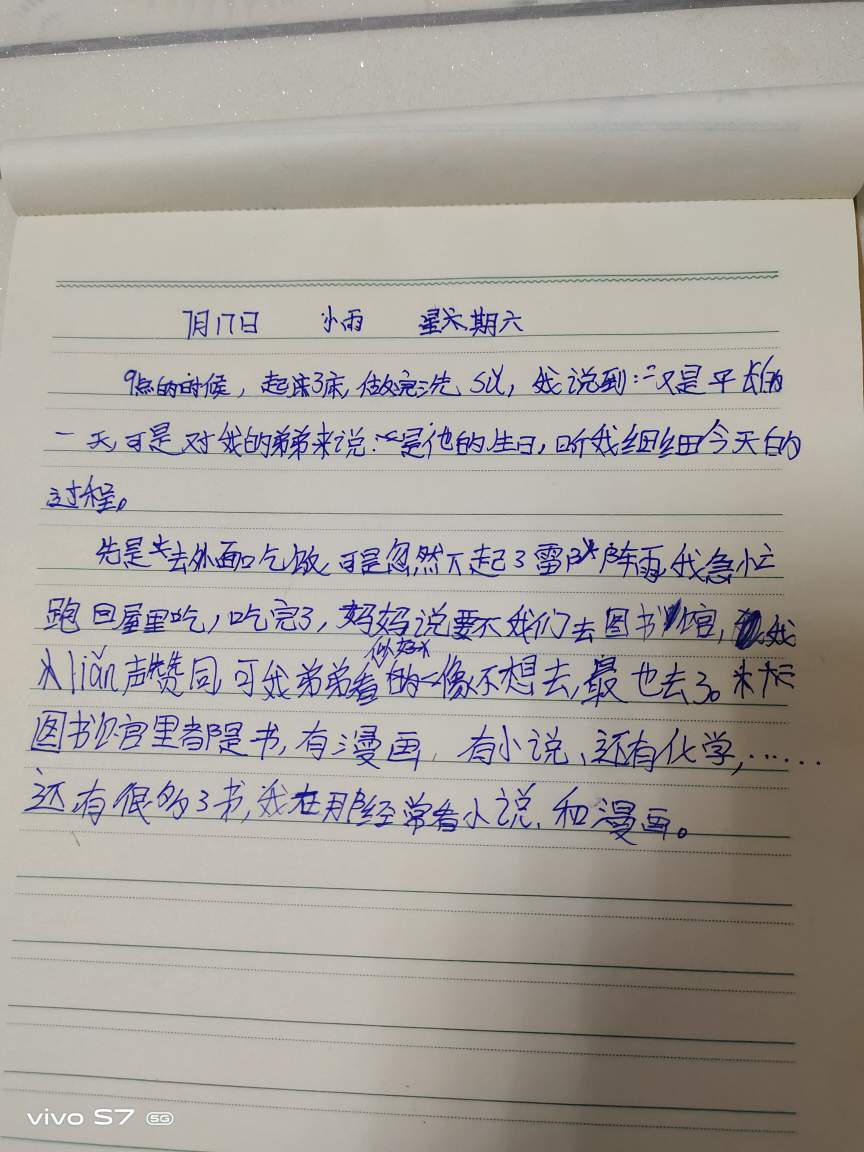 7月17日 小雨 星期六
9点的时候，起床了床，做完洗，以，我说到：“又是平长的
一天，可是对我的弟弟来说：“是他的生日，听我细细今天的
过程。
先是去外面吃饭，可是忽然下起了雷阵雨，我急忙
跑回屋里吃，吃完了，妈妈说要不我们去图书馆，我
liǎn声赞同，可我弟弟看的像不想去，最也去了。来大
似好
图书馆里都是书，有漫画，有小说、还有化学，……
还有很多了书，我在那经常看小说、和漫画。
vivo S7 5G